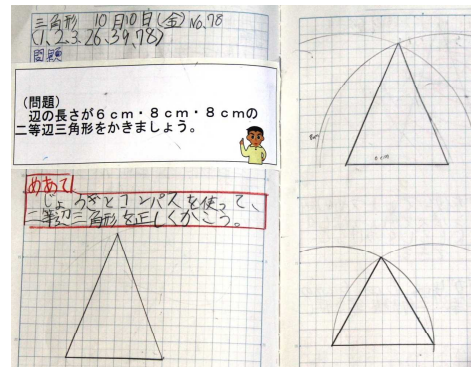 三角形 10月10日(金) No.78
(1、2、3、26、39、78)
問題
(問題)
辺の長さが6cm・8cm・8cmの
二等辺三角形をかきましょう。
めあて
じょうぎとコンパスを使って、
二等辺三角形を正しくかこう。
8cm
6cm